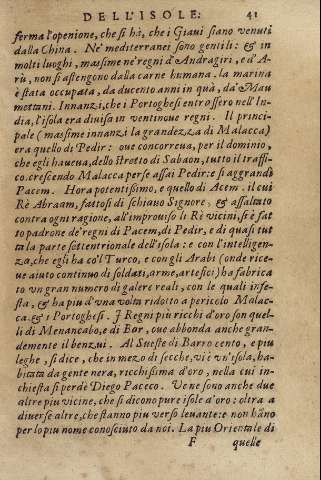 DELL'ISOLE. 41
ferma l'openione, che si hà, che i Giaui siano venuti
dalla China. Ne' mediterranei sono gentili: & in
molti luoghi, massime ne' regni d'Andragiri, e d'A-
rù, non si astengono dalla carne humana. la marina
è stata occupata, da ducento anni in quà, da' Mau
mettani. Innanzi, che i Portoghesi entrassero nell'In-
dia, l'isola era diuisa in ventinoue regni. Il princi-
pale (massime innanzi la grandezza di Malacca)
era quello di Pedir: oue concorreua, per il dominio,
che egli haueua, dello stretto di Sabaon, tutto il traffi-
co. crescendo Malacca perse assai Pedir: e si aggrandì
Pacem. Hora potentissimo, e quello di Acem. il cui
Rè Abraam, fattosi di schiauo Signore, & assaltato
contra ogni ragione, all'improuiso li Rè vicini, si è fat
to padrone de' regni di Pacem, di Pedir, e di quasi tut
ta la parte settentrionale dell'isola: e con l'intelligen-
za, che egli ha co'l Turco, e con gli Arabi (onde rice-
ue aiuto continuo di soldati, arme, artefici) ha fabrica
to vn gran numero di galere reali, con le quali infe-
sta, & ha piu d'vna volta ridotto a pericolo Malac-
ca. & i Portoghesi. I Regni più ricchi d'oro son quel-
li di Menancabo, e di Bar, oue abbonda anche gran-
demente il benzui. Al Sueste di Barro cento, e piu
leghe, si dice, che in mezo di secche, vi è vn'isola, ha-
bitata da gente nera, ricchissima d'oro, nella cui in-
chiesta si perdè Diego Paceco. Ve ne sono anche due
altre piu vicine, che si dicono pure isole d'oro: oltra a
diuerse altre, che stanno piu verso leuante: e non hãno
per lo piu nome conosciuto da noi. La piu Orientale di
F quelle